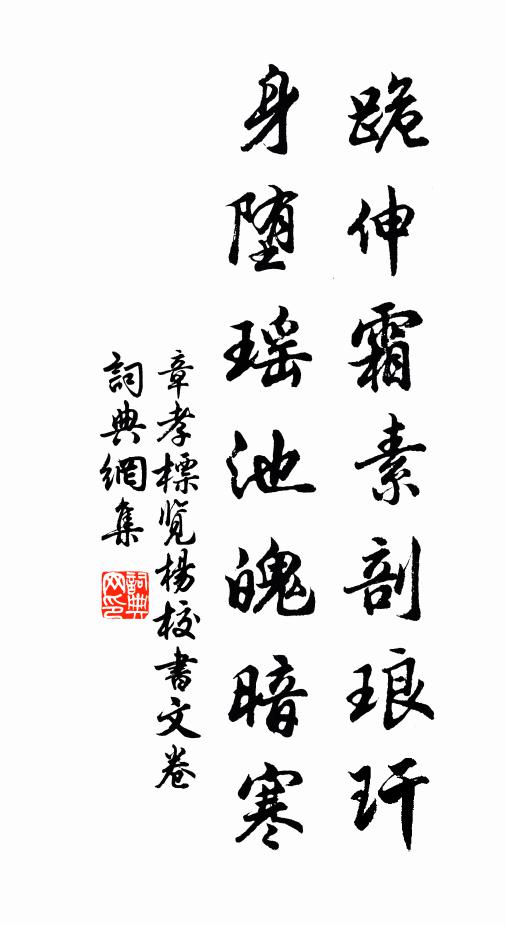 跪伸霜素剖琅玕
身堕瑶池魄暗寒
章孝標览楊校書文卷
詞典網集
詞典网印